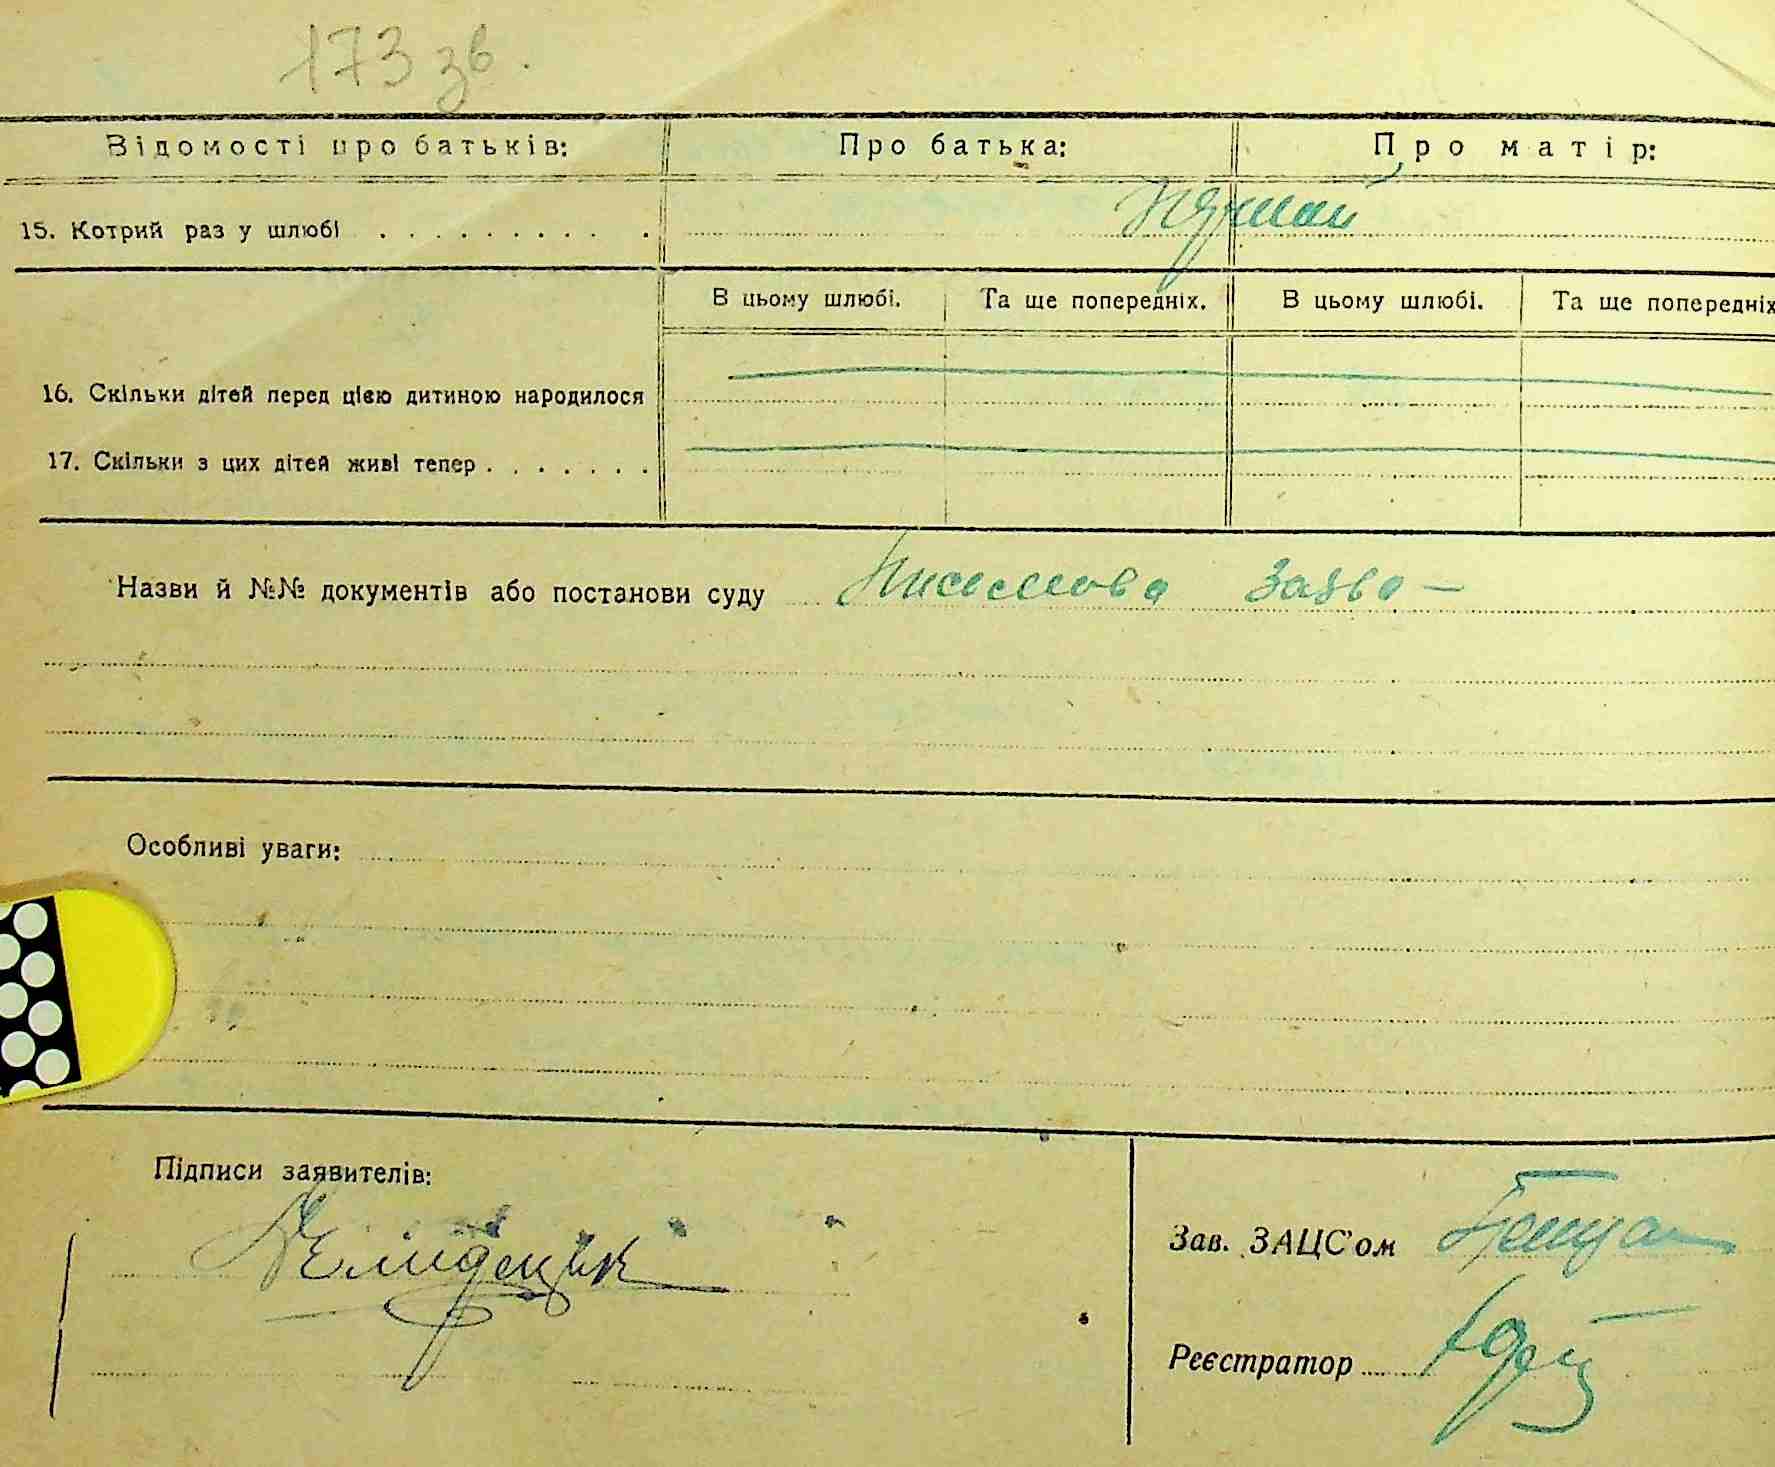 173 зв.
Відомості про батьків: Про батька: Про матір:
15. Котрий раз у шлюбі . . . . . . . . . . Перший
В цьому шлюбі. Та ще попередніх. В цьому шлюбі. Та ще попередніх
16. Скільки дітей перед цією дитиною народилося
17. Скільки з цих дітей живі тепер . . . . . . .
Назви й №№ документів або постанови суду Письмова заява —
Особливі уваги:
Підписи заявителів:
Зав. ЗАЦС'ом
Реєстратор